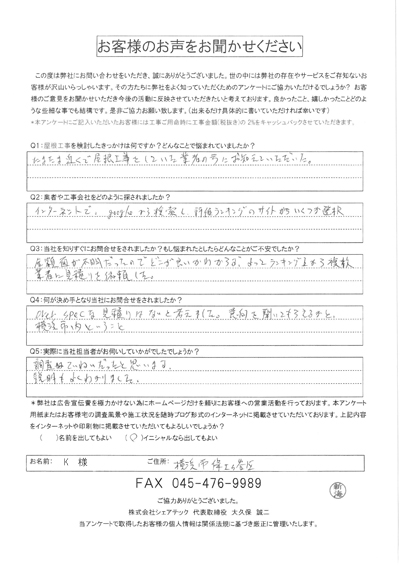 お客様のお声をお聞かせください
この度は弊社にお問い合わせをいただき、誠にありがとうございました。世の中には弊社の存在やサービスをご存知ないお
客様が沢山いらっしゃいます。その方たちに弊社をよく知っていただくためのアンケートにご協力いただけるでしょうか？ お客
様のご意見をお聞かせいただき今後の活動に反映させていただきたいと考えております。良かったこと、嬉しかったことどのよ
うな些細な事でも結構です。是非ご協力お願い致します。（出来るだけ具体的に書いていただければ幸いです）
*本アンケートにご記入いただいたお客様には工事ご用命時に工事金額(税抜き)の2%をキャッシュバックさせていただきます。
Q1:屋根工事を検討したきっかけは何ですか？どんなことで悩まれていましたか？
たまたま近くで屋根工事をしていた業者の方にお教えていただいた。
Q2:業者や工事会社をどのように探されましたか？
インターネットで、googleから検索し、評価ランキングのサイトからいくつか選択
Q3:当社を知りすぐにお問合せをされましたか？もし悩まれたとしたらどんなことがご不安でしたか？
金額面が不明だったのでどこが良いかわからず、よってランキング上から複数
業者に見積りを依頼した。
Q4:何が決め手となり当社にお問合せをされましたか？
な見積りは
横浜市内ということ
Q5:実際に当社担当者がお伺いしていかがでしたでしょうか？
調査はていねいだったと思います。
説明もよくわかりました。
＊弊社は広告宣伝費を極力かけない為にホームページだけを頼りにお客様への営業活動を行っております。本アンケート
用紙またはお客様宅の調査風景や施工状況を随時ブログ形式のインターネットに掲載させていただいております。上記内容
をインターネットや印刷物に掲載させていただいてもよろしいでしょうか？
（ ）名前を出してもよい （✓）イニシャルなら出してもよい
お名前： K 様 ご住所： 横浜市保土ヶ谷区
FAX 045-476-9989
新海
ご協力ありがとうございました。
株式会社シェアテック 代表取締役 大久保 誠二
当アンケートで取得したお客様の個人情報は関係法規に基づき厳正に管理いたします。